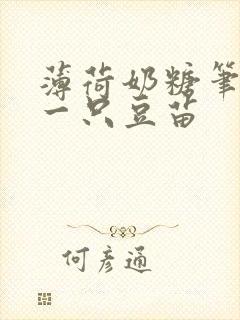 薄荷奶糖筆
一只豆苗
何彦通